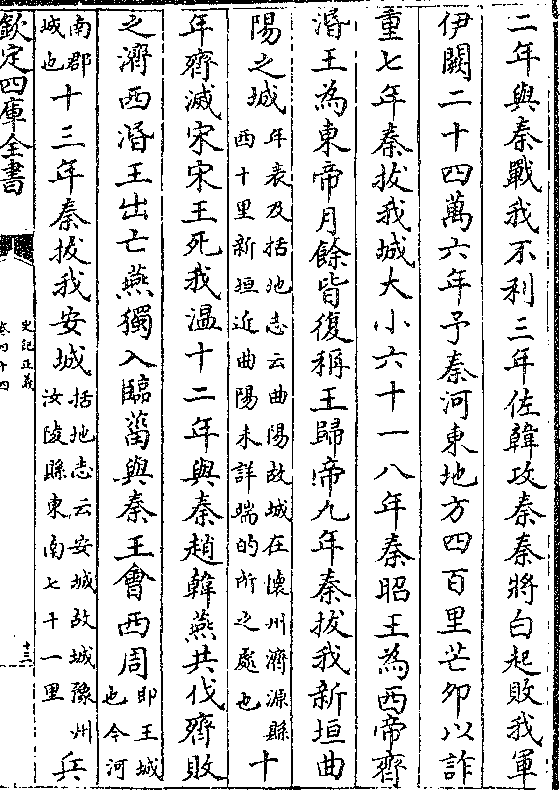 二年與秦戰我不利三年佐韓攻秦秦將白起敗我軍
伊闕二十四萬六年予秦河東地方四百里芒卯以詐
重七年秦拔我城大小六十一八年秦昭王為西帝齊
湣王為東帝月餘皆復稱王歸帝九年秦拔我新垣曲
陽之城年表及括地志云曲陽故城在懷州濟源縣西十里新垣近曲陽未詳端的所之處也十
年齊滅宋宋王死我温十二年與秦趙韓燕共伐齊敗
之濟西湣王出亡燕獨入臨菑與秦王會西周即王城也今河
南郡城也十三年秦拔我安城括地志云安城故城豫州汝陵縣東南七十一里兵
欽定四庫全書
史記正義
卷四十四
十三